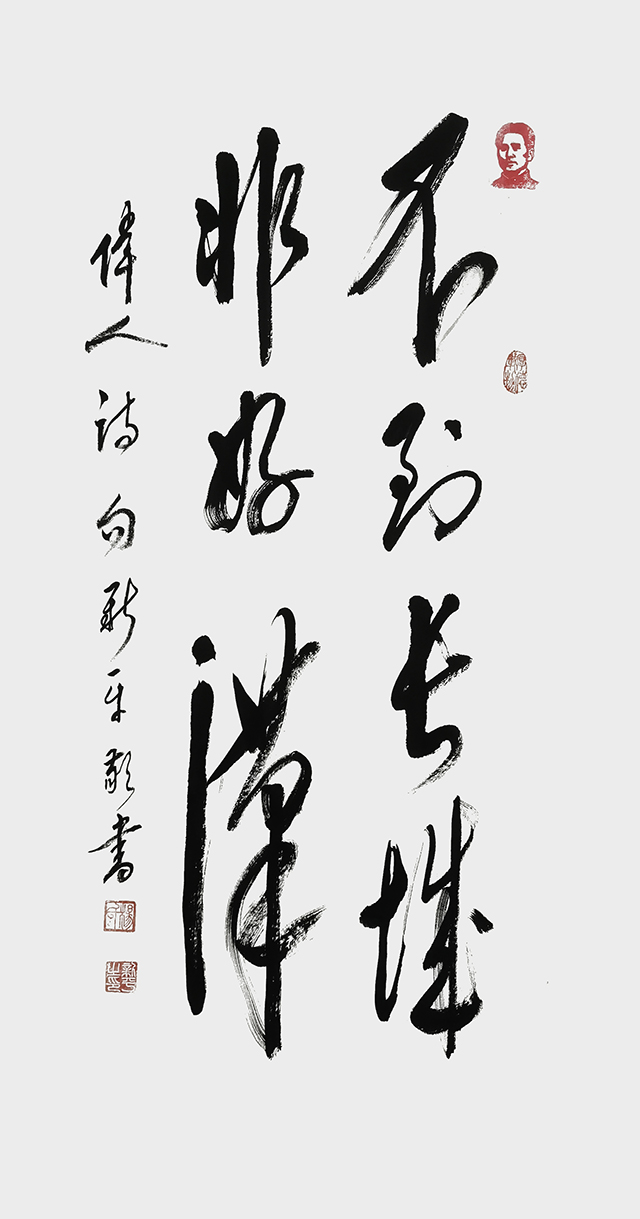 不到长城
非好漢
偉人诗句新平敬书